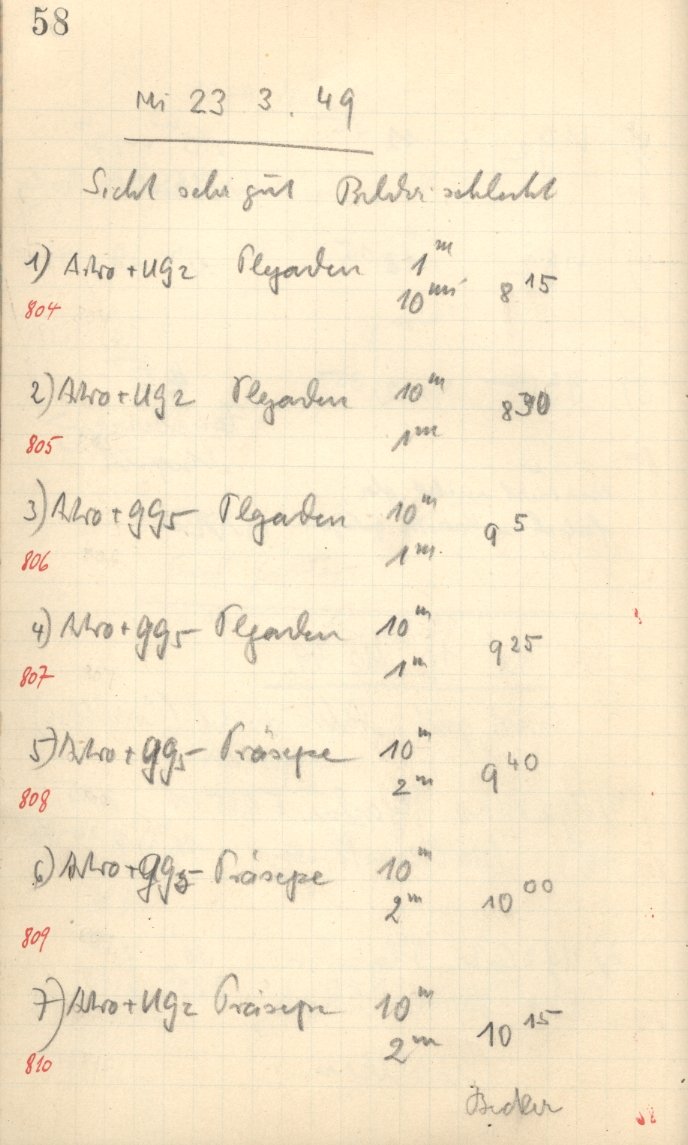 58
Mi 23 3. 49
Sicht sehr gut Bilder schlecht
1) Astro + UG2 Plejaden 1^m
804 10^min 8^15
2) Astro + UG2 Plejaden 10^m 8^30
805 1^m
3) Astro + GG5 Plejaden 10^m 9^5
806 1^m
4) Astro + GG5 Plejaden 10^m 9^25
807 1^m
5) Astro + GG5 Präsepe 10^m 9^40
808 2^m
6) Astro + GG5 Präsepe 10^m
2^m 10^00
809
7) Astro + UG2 Präsepe 10^m
2^m 10^15
810